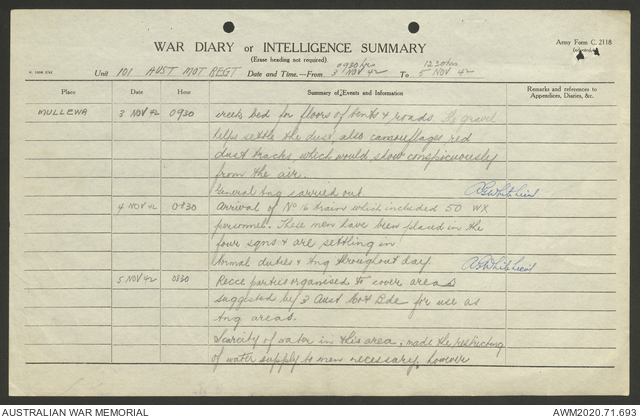 Army Form C. 2118
(adapted)
WAR DIARY or INTELLIGENCE SUMMARY
(Erase heading not required).
Unit 101 AUST MOT REGT Date and Time.—From 0930 hrs 3 NOV 42 To 1230 hrs 5 NOV 42
Place Date Hour Summary of Events and Information Remarks and references to Appendices, Diaries, &c.
MULLEWA 3 NOV 42 0930 creek bed for floors of tents & roads. The gravel
helps settle the dust, also camouflages red
dust tracks which would show conspicuously
from the air.
General tng carried out
4 NOV 42 0830 Arrival of No 6 train which included 50 WX
personnel. These men have been placed in the
four sqns & are settling in
Normal duties & tng throughout day
5 NOV 42 0830 Recce parties organised to cover areas
suggested by 3 Aust Mot Bde for use as
tng areas.
Scarcity of water in this area, made the restricting
of water supply to men necessary, however
AUSTRALIAN WAR MEMORIAL
AWM2020.71.693